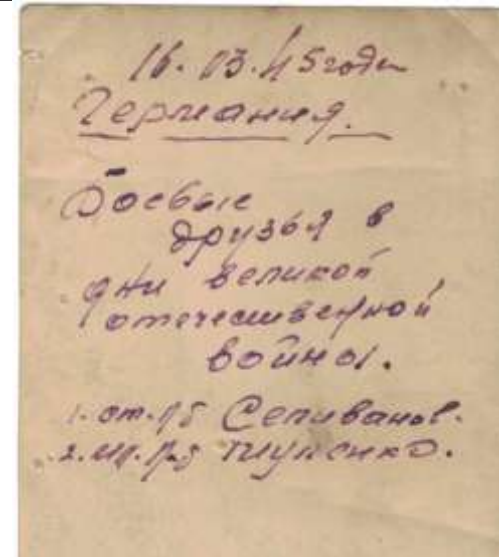 16.03.45 года
Германия.
Боевые
друзья в
дни великой
отечественной
войны.
1. ст. л-т Селиванов.
2. мл. л-т